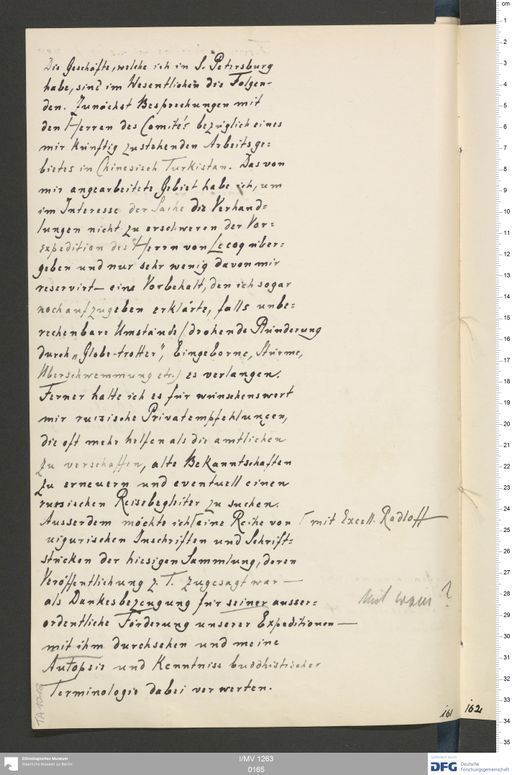 Die Geschäfte, welche ich in S. Petersburg
habe, sind im Wesentlichen die Folgen-
den. Zunächst Besprechungen mit
den Herren des Comité's bezüglich eines
mir künftig zustehenden Arbeitsge-
bietes in Chinesisch Turkistan. Das von
mir angearbeitete Gebiet habe ich, um
im Interesse der Sache die Verhand-
lungen nicht zu erschweren der Vor-
expedition des Herrn von Lecoq über-
geben und nur sehr wenig davon mir
reservirt — eine Vorbehalt, den ich sogar
noch aufzugeben erklärte, falls unbe-
rechenbare Umstände (drohende Plünderung
durch „Globe-trotter", Eingeborne, Stürme,
Überschwemmung etc.) es verlangen.
Ferner halte ich es für wünschenswert
mir russische Privatempfehlungen,
die oft mehr helfen als die amtlichen
zu verschaffen, alte Bekanntschaften
zu erneuern und eventuell einen
russischen Reisebegleiter zu suchen.
Ausserdem möchte ich ſ eine Reihe von ſ mit Excell. Radloff
uigurischen Inschriften und Schrift-
stücken der hiesigen Sammlung, deren
Veröffentlichung z. T. zugesagt war —
als Dankesbezeugung für seiner ausser-
ordentliche Förderung unserer Expeditionen —
mit wem?
mit ihm durchsehen und meine
Autopsie und Kenntniss buddhistischer
Terminologie dabei verwerten.
161
162
Ethnologisches Museum
Staatliche Museen zu Berlin
I/MV 1263
0165
DFG Deutsche
Forschungsgemeinschaft